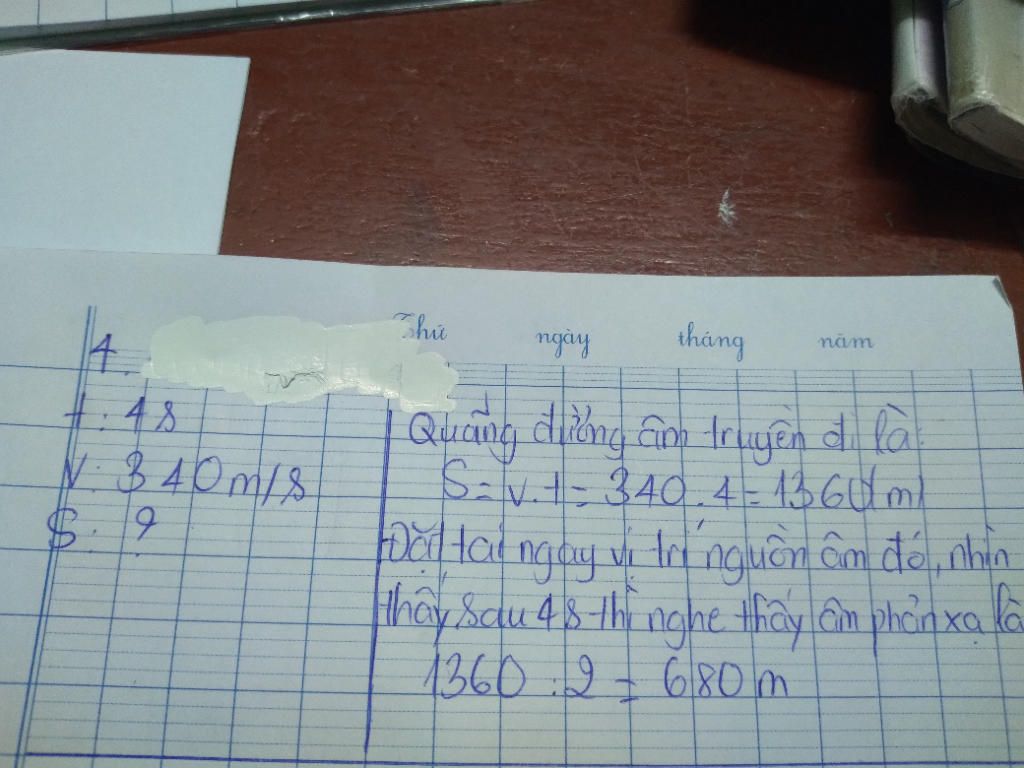 Thứ ngày tháng năm
4.
t: 4s
v: 340m/s
S: ?
Quảng đường âm truyền đi là:
S = v.t = 340.4 = 1360(m)
Đặt tại ngay vị trí nguồn âm đó, nhìn
thấy sau 4s thì nghe thấy âm phản xạ là
1360 : 2 = 680m